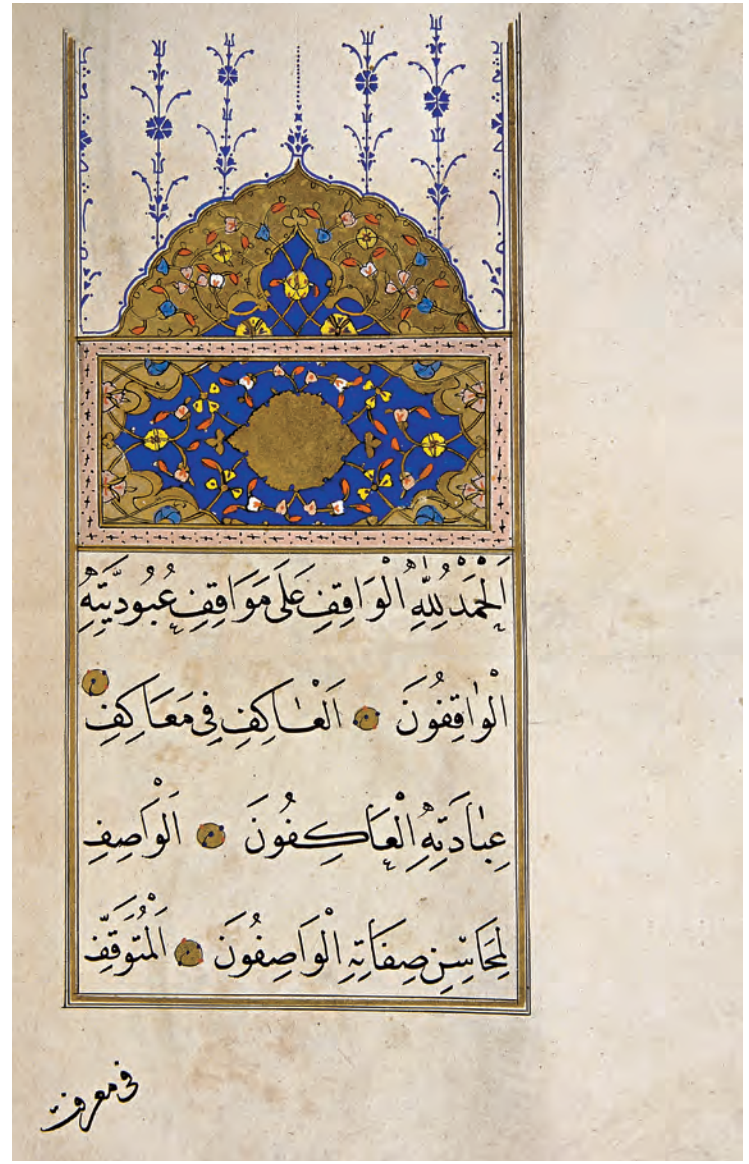 اَلْحَمْدُ لِلّٰهِ الْوَاقِفِ عَلَى مَوَاقِفِ عُبُودِيَّتِهِ
الْوٰاقِفُونَ اَلْعٰاكِفِ فِى مَعَاكِفِ
عِبٰادَتِهِ الْعَاكِفُونَ اَلْوَاصِفِ
لِمَحَاسِنِ صِفَاتِهِ الْوَاصِفُونَ اَلْمُتَوَقِّفِ
فى معرفت